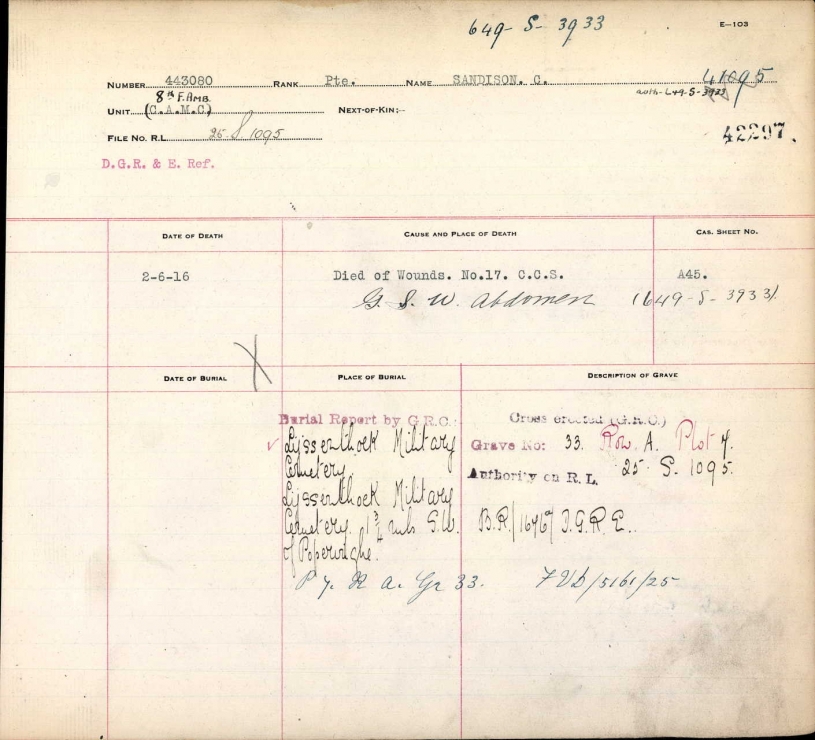 649-S-3933
E—103
NUMBER 443080 RANK Pte. NAME SANDISON. C. 41095
auth-649-S-3933
8th F. Amb.
UNIT (C.A.M.C) NEXT-OF-KIN:-
FILE No. R.L. 25-S-1095
42297.
D.G.R. & E. Ref.
DATE OF DEATH CAUSE AND PLACE OF DEATH CAS. SHEET NO.
2-6-16 Died of Wounds. No.17. C.C.S. A45.
G. S. W. Abdomen (649-S-3933).
DATE OF BURIAL PLACE OF BURIAL DESCRIPTION OF GRAVE
Burial Report by G.R.C. Cross erected (G.R.C.)
Lijssenthoek Military Grave No: 33. Row A. Plot 7.
Cemetery. Authority on R.L. 25-S-1095.
Lijssenthoek Military
Cemetery 1 3/4 mls S.W. B.R./1676/D.G.R.E.
of Poperinghe.
P 7. R a. Gr 33. 7Vb/5161/25